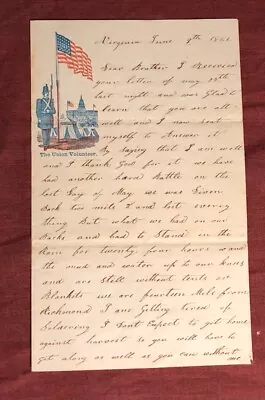 Virginia June 9th 1862
Dear Brother I Received
your letter of may 29th
last night and was Glad to
learn that you are all
well and I now seat
myself to Answer it
The Union Volunteer.
By saying that I am well
and I thank God for it we have
had another hard Battle on the
last Day of May we was Driven
Back two mile I and lost every
thing But what we had on our
Backs and had to Stand in the
Rain for twenty four hours and
the mud and water up to our knees
and are still without tents or
Blankets we are fourteen Mile from
Richmond I am Getting tired of
Solarering I Dont Expect to get home
against harvest so you will have to
get along as well as you can without
me